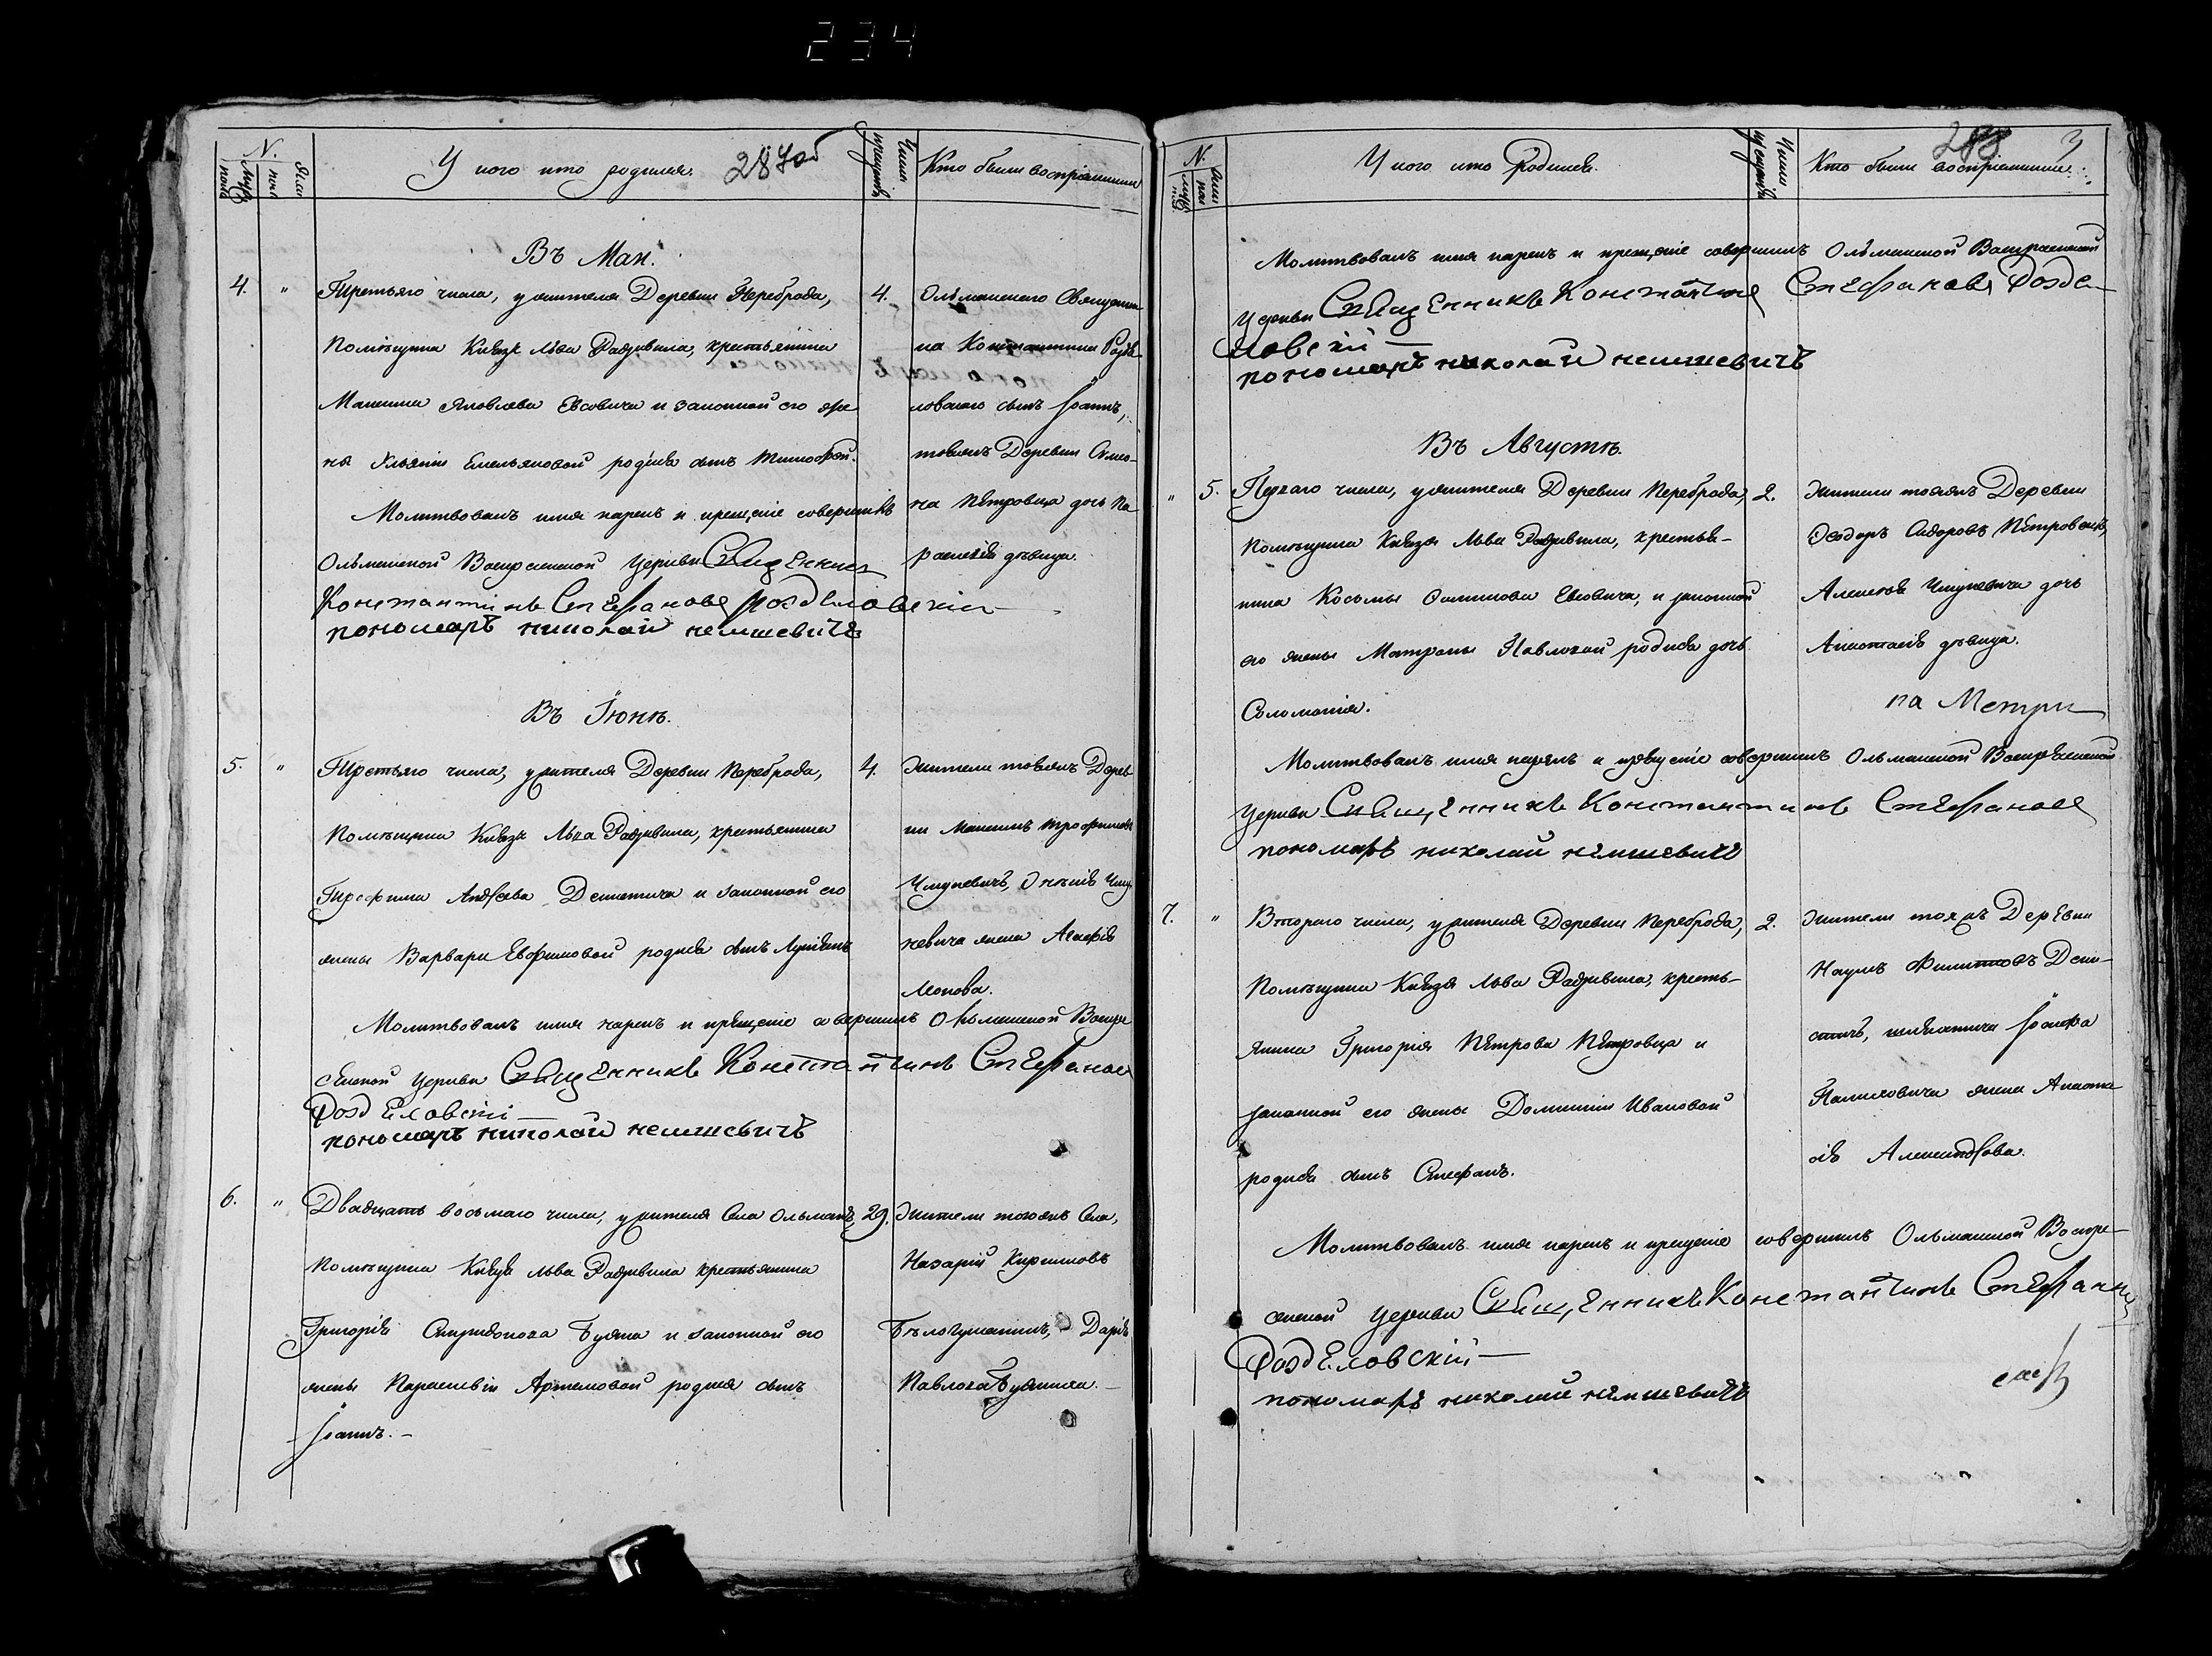 234
N.
Муж. пола
Жен. пола
У кого кто родился.
287об
Числа крещенія
Кто были воспріемники
Въ Маи.
4. " Третьяго числа, у жителя Деревни Переброда, 4.
Помѣщика Князя Льва Радзивила, крестьянина
Максима Яковлева Евсовича и законной его же
ны Ульяніи Емельяновой родився сынъ Тимофей.
Ольманского Священни
ка Константина Роздя
ловского сынъ Іоаннъ,
тояжъ Деревни Симо-
на Петровца дочь Па
раскевія дѣвица.
Молитвовалъ имя нарекъ и крещеніе совершилъ
Ольманской Воскресенской Церкви Священникъ
Константинъ Стефановъ Роздяловскій
пономаръ николай немшевичъ
Въ Іюнѣ.
5. " Третьяго числа, у жителя Деревни Переброда, 4.
Помѣщика Князя Льва Радзивила, крестьянина
Трофима Андреева Демковича и законной его
жены Варвары Евфимовой родився сынъ Лукіянъ
Жители тояжъ Дерев
ни Максимъ Трофимовъ
Чмуневичъ,
невича жена Агафія
Леонова.
Молитвовалъ имя нарекъ и крещеніе совершилъ Ольманской Воскре
сенской Церкви Священникъ Константинъ Стефановъ
Розделовскій
пономаръ николай немшевичъ
6. " Двадцать восьмаго числа, у жителя Села Ольманъ, 29.
Помѣщика Князя Льва Радзивила крестьянина
Григорія Спиридонова Буяна и законной его
жены Параскевіи Артемовой родился сынъ
Іоаннъ.
Жители тогожъ Села,
Назарій Кириловъ
Дарія
Павлова Буяниха.
N.
Муж. п.
Жен. пол
У кого кто Родился.
Числа крещенія
288
3
Кто были воспріемники.
Молитвовалъ имя нарекъ и крещеніе совершилъ Ольманской Воскресенской
Церкви Священникъ Константинъ Стефановъ Розде-
ловскій
пономаръ николай немшевичъ
Въ Августѣ.
" 5. Перваго числа, у жителя Деревни Переброда, 2.
Помѣщика Князя Льва Радзивила, крестья-
нина Косьмы Евсовича, и законной
его жены Матроны Павловой родися дочь
Соломонія.
Жители тояжъ Деревни
Ѳеодоръ Сидоровъ Петровецъ,
Алексея Чмуневича дочь
Анастасія дѣвица.
на Метри
Молитвовалъ имя нарекъ и крещеніе совершилъ Ольманской Воскресенской
Церкви Священникъ Константинъ Стефановъ
пономаръ николай немшевичъ
7. " Втораго числа, у жителя Деревни Переброда, 2.
Помѣщика Князя Льва Радзивила, кресть-
янина Григорія Петрова Петровца и
законной его жены Домникіи Ивановой
родися сынъ Стефанъ.
Жители тояжъ Деревни
Наумъ Филиповъ
Іосифа
жена Анаста
сія Александрова.
Молитвовалъ имя нарекъ и крещеніе совершилъ Ольманской Воскре-
сенской Церкви Священникъ Константинъ Стефановъ
Розделовскій
пономаръ николай немшевичъ